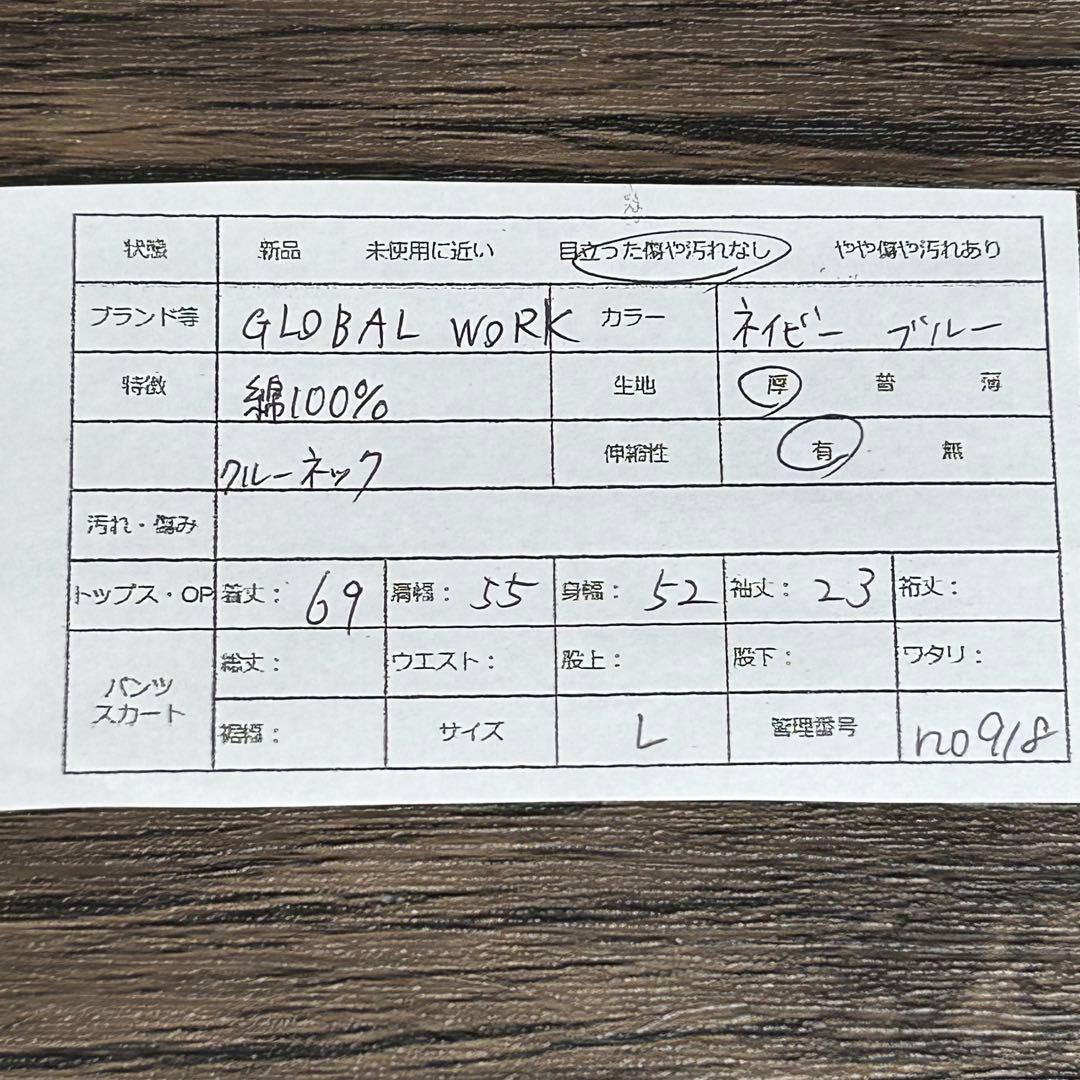 状態 新品 未使用に近い 目立った傷や汚れなし やや傷や汚れあり
ブランド等 GLOBAL WORK カラー ネイビー ブルー
特徴 綿100% 生地 厚 普 薄
クルーネック 伸縮性 有 無
汚れ・傷み
トップス・OP 着丈: 69 肩幅: 55 身幅: 52 袖丈: 23 裄丈:
パンツ スカート 総丈: ウエスト: 股上: 股下: ワタリ:
裾幅: サイズ L 管理番号 no918